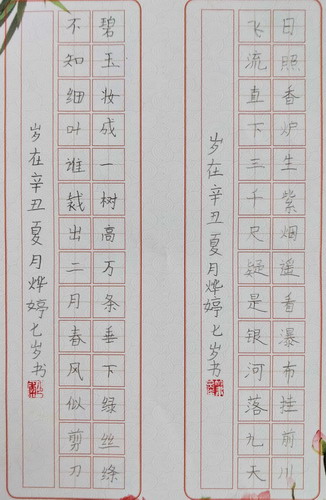 日照香炉生紫烟遥看瀑布挂前川
飞流直下三千尺疑是银河落九天
岁在辛丑夏月烨婷七岁书
碧玉妆成一树高万条垂下绿丝绦
不知细叶谁裁出二月春风似剪刀
岁在辛丑夏月烨婷七岁书